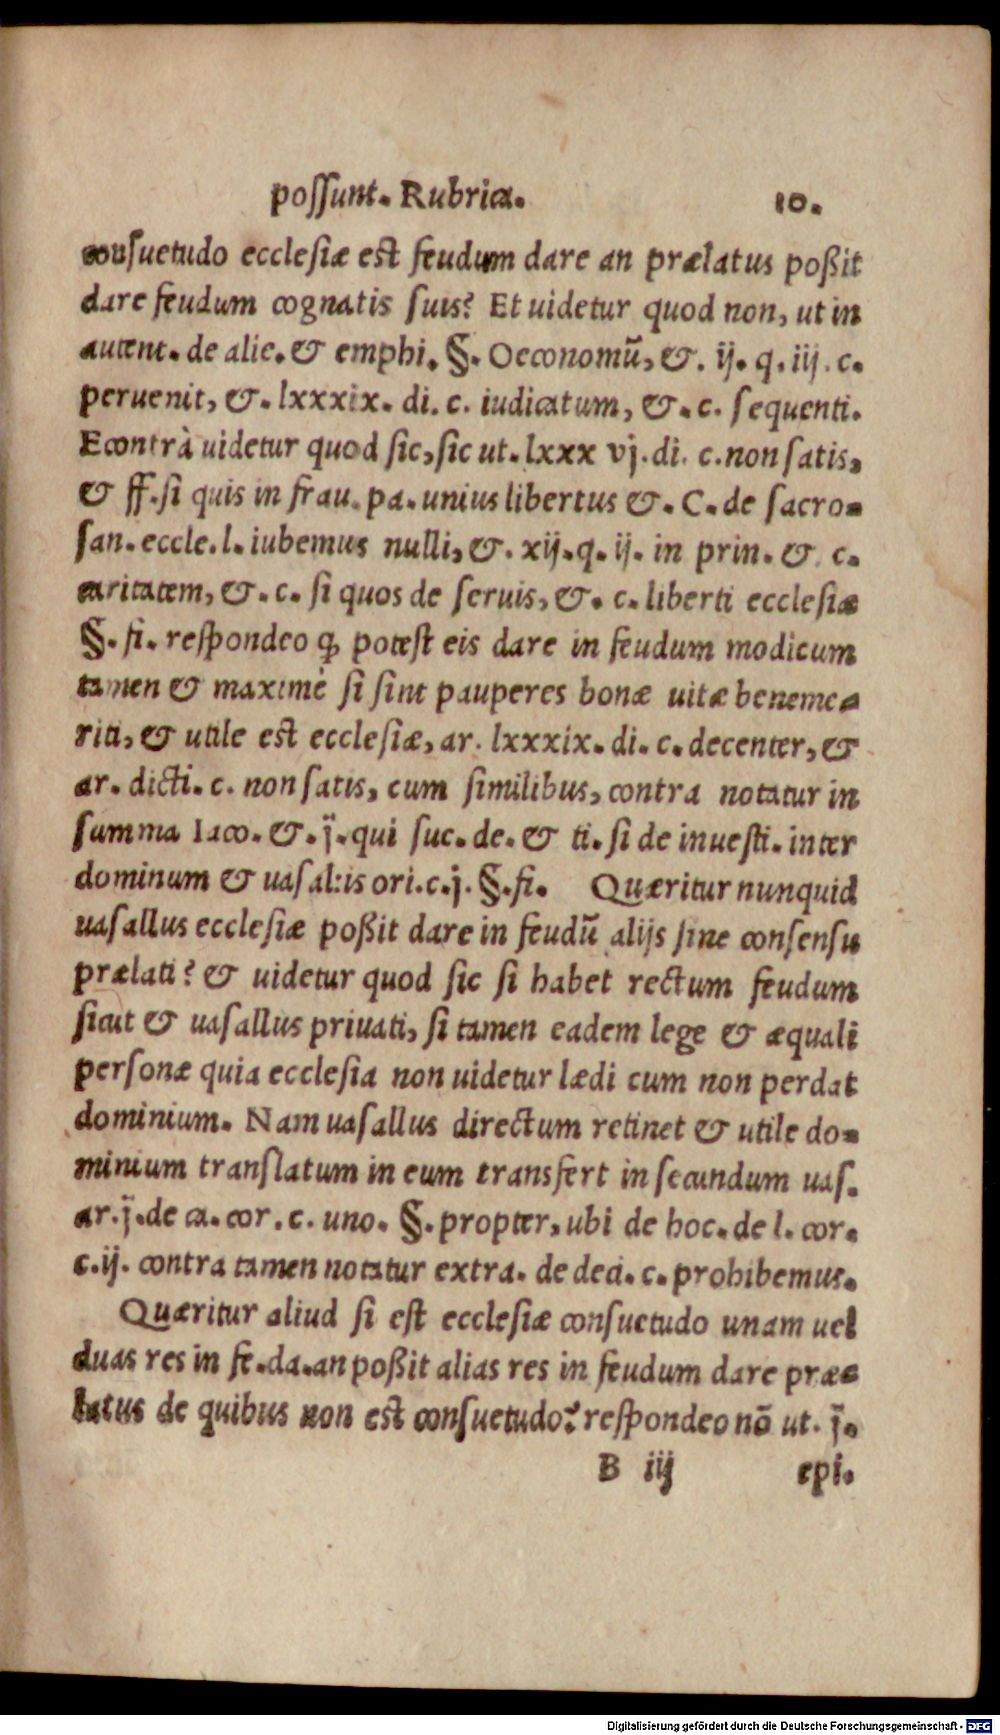 possunt. Rubrica. 10.
consuetudo ecclesiæ est feudum dare an prælatus poßit
dare feudum cognatis suis? Et uidetur quod non, ut in
autent. de alie. & emphi. §. Oeconomū, &. ij. q. iij. c.
peruenit, &. lxxxix. di. c. iudicatum, &. c. sequenti.
Econtrà uidetur quod sic, sic ut. lxxx vj. di. c. non satis,
& ff. si quis in frau. pa. unius libertus &. C. de sacro-
san. eccle. l. iubemus nulli, &. xij. q. ij. in prin. & c.
caritatem, &. c. si quos de seruis, &. c. liberti ecclesiæ
§. fi. respondeo ꝙ potest eis dare in feudum modicum
tamen & maximè si sint pauperes bonæ uitæ beneme-
riti, & utile est ecclesiæ, ar. lxxxix. di. c. decenter, &
ar. dicti. c. non satis, cum similibus, contra notatur in
summa Iaco. &. j̄. qui suc. de. & ti. si de inuesti. inter
dominum & uasallis ori. c. j. §. fi. Quæritur nunquid
uasallus ecclesiæ poßit dare in feudū alijs sine consensu
prælati? & uidetur quod sic si habet rectum feudum
sicut & uasallus priuati, si tamen eadem lege & æquali
personæ quia ecclesia non uidetur lædi cum non perdat
dominium. Nam uasallus directum retinet & utile do-
minium translatum in eum transfert in secundum uas.
ar. j̄. de ca. cor. c. uno. §. propter, ubi de hoc. de l. cor.
c. ij. contra tamen notatur extra. de deci. c. prohibemus.
Quæritur aliud si est ecclesiæ consuetudo unam uel
duas res in fe. da. an poßit alias res in feudum dare præ-
latus de quibus non est consuetudo? respondeo nō ut. j̄.
B iij epi.
Digitalisierung gefördert durch die Deutsche Forschungsgemeinschaft - DFG